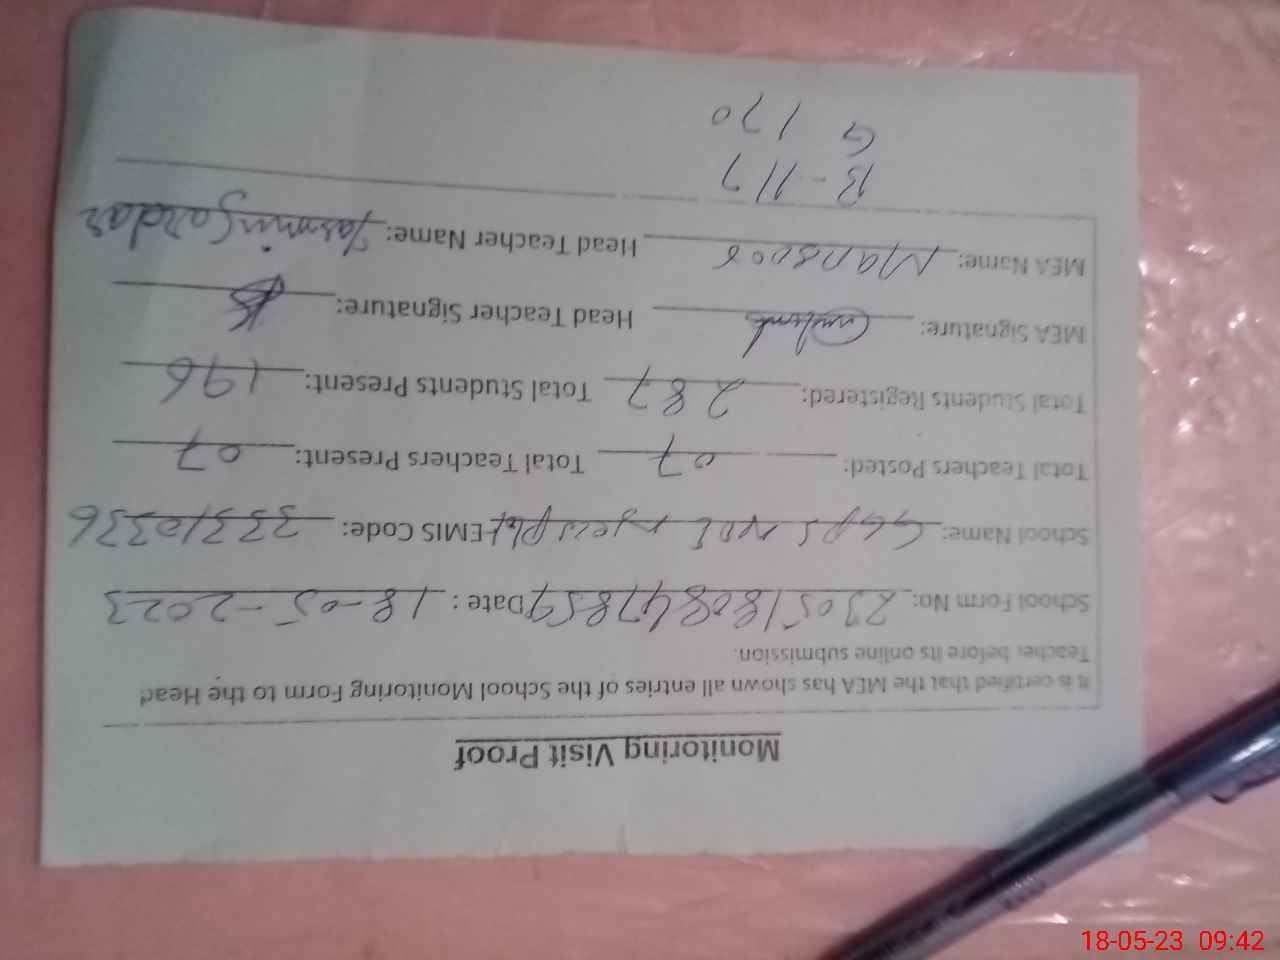 Monitoring Visit Proof
It is certified that the MEA has shown all entries of the School Monitoring Form to the Head
Teacher before its online submission.
School Form No: 2305180847859 Date : 18-05-2023
School Name: GGPS EMIS Code: 33310336
Total Teachers Posted: 07 Total Teachers Present: 07
Total Students Registered: 287 Total Students Present: 196
MEA Signature: Head Teacher Signature:
MEA Name: Mansoor Head Teacher Name: Yasmin Sardar
B - 117
G 170
18-05-23 09:42